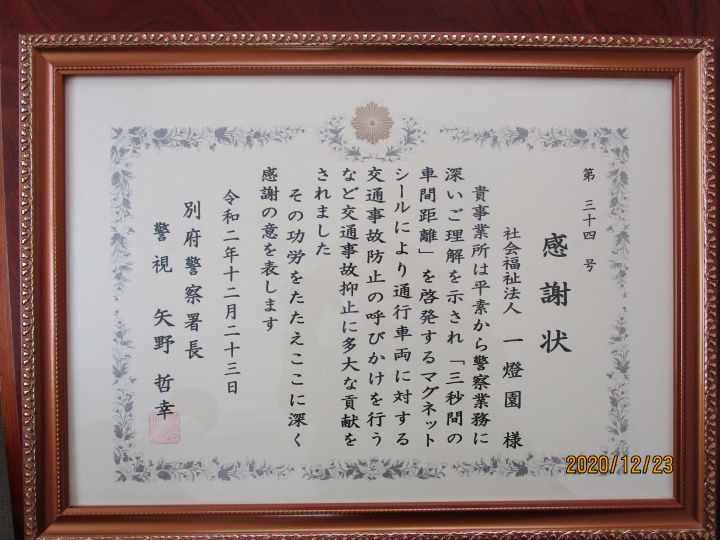 第 三十四 号
感謝状
社会福祉法人 一燈園 様
貴事業所は平素から警察業務に
深いご理解を示され「三秒間の
車間距離」を啓発するマグネット
シールにより通行車両に対する
交通事故防止の呼びかけを行う
など交通事故抑止に多大な貢献を
されました
その功労をたたえここに深く
感謝の意を表します
令和二年十二月二十三日
別府警察署長
警視 矢野 哲幸
2020/12/23